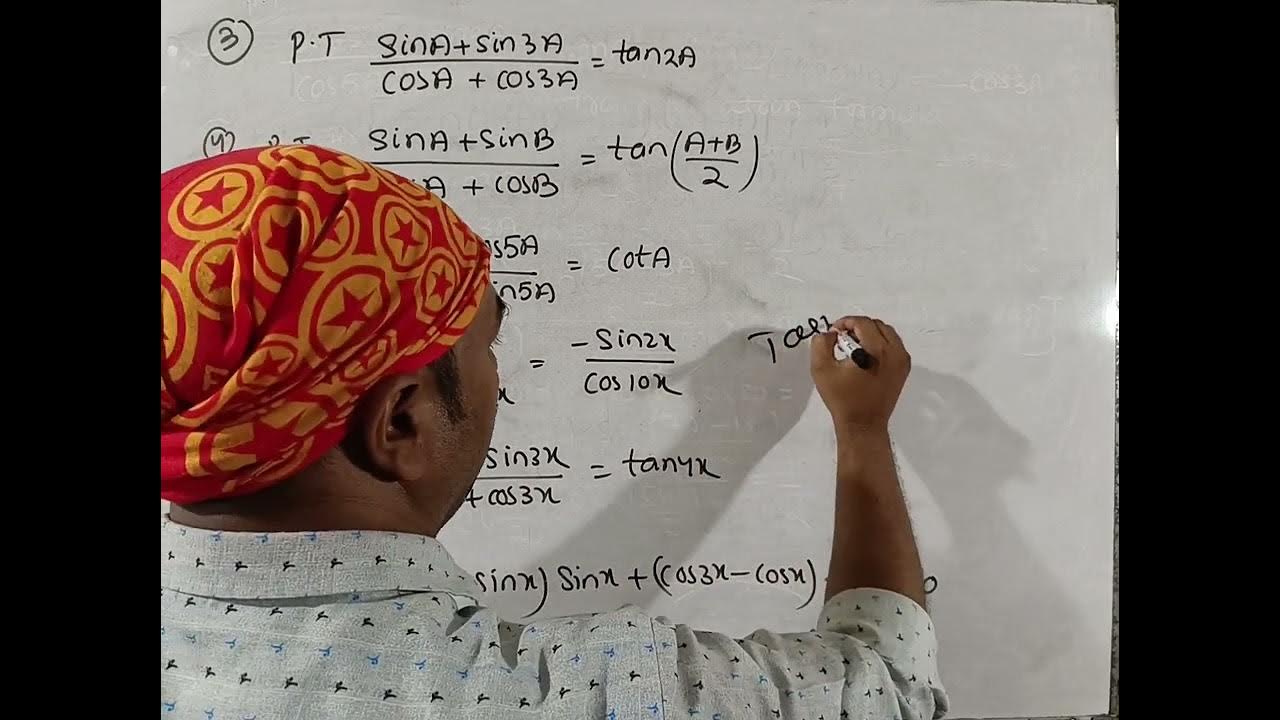 ③ P.T sinA+sin3A / cosA + cos3A = tan2A
(4) P.T sinA+sinB / A + cosB = tan(A+B / 2)
os5A / in5A = cotA
x = -sin2x / cos10x
sin3x / + cos3x = tan4x
sinx) sinx + (cos3x-cosx)